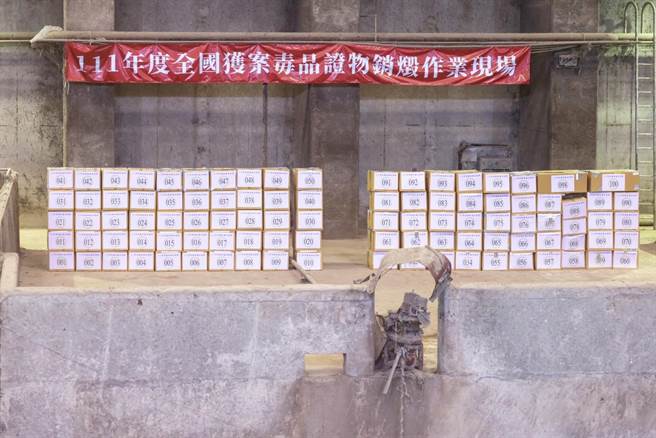 111年度全國獲案毒品證物銷燬作業現場
041 042 043 044 045 046 047 048 049 050
031 032 033 034 035 036 037 038 039 040
021 022 023 024 025 026 027 028 029 030
011 012 013 014 015 016 017 018 019 020
001 002 003 004 005 006 007 008 009 010
091 092 093 094 095 096 098 100
081 082 083 084 085 086 087 088 089 090
071 072 073 074 075 076 077 078 079 080
061 062 063 064 065 066 067 068 069 070
054 055 056 057 058 059 060